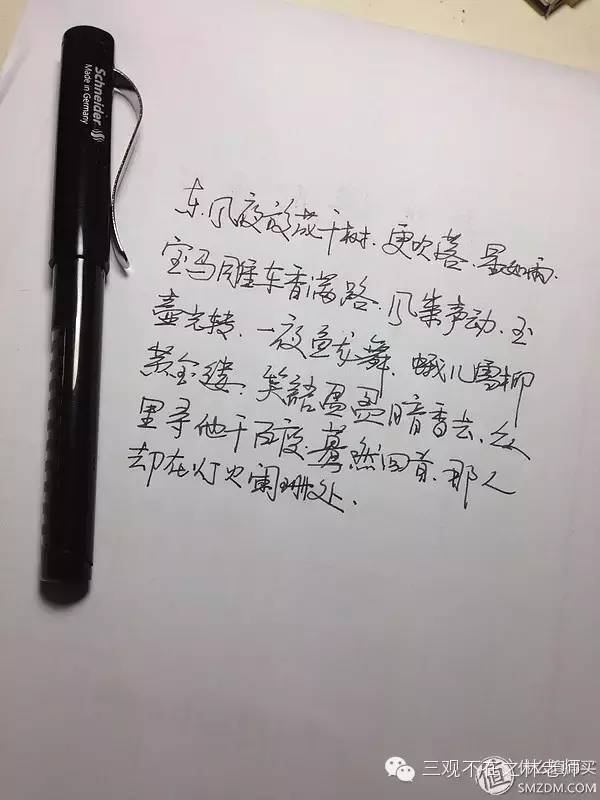 Schneider
Made in Germany
东风夜放花千树.更吹落.星如雨.
宝马雕车香满路.凤箫声动.玉
壶光转.一夜鱼龙舞.蛾儿雪柳
黄金缕.笑語盈盈暗香去.众
里寻他千百度.蓦然回首.那人
却在灯火阑珊处.
三观不在 林老师
值 什么值得买
SMZDM.COM